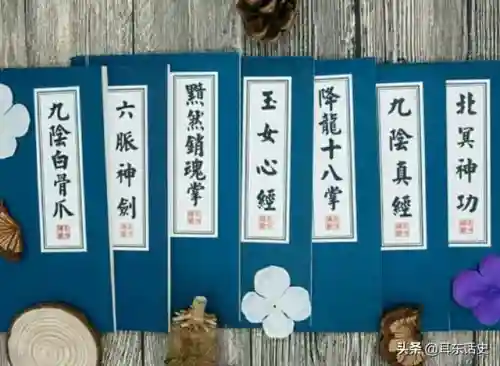 九陰白骨爪
六脈神劍
黯然銷魂掌
玉女心經
降龍十八掌
九陰真經
北冥神功
头条 @耳东话史